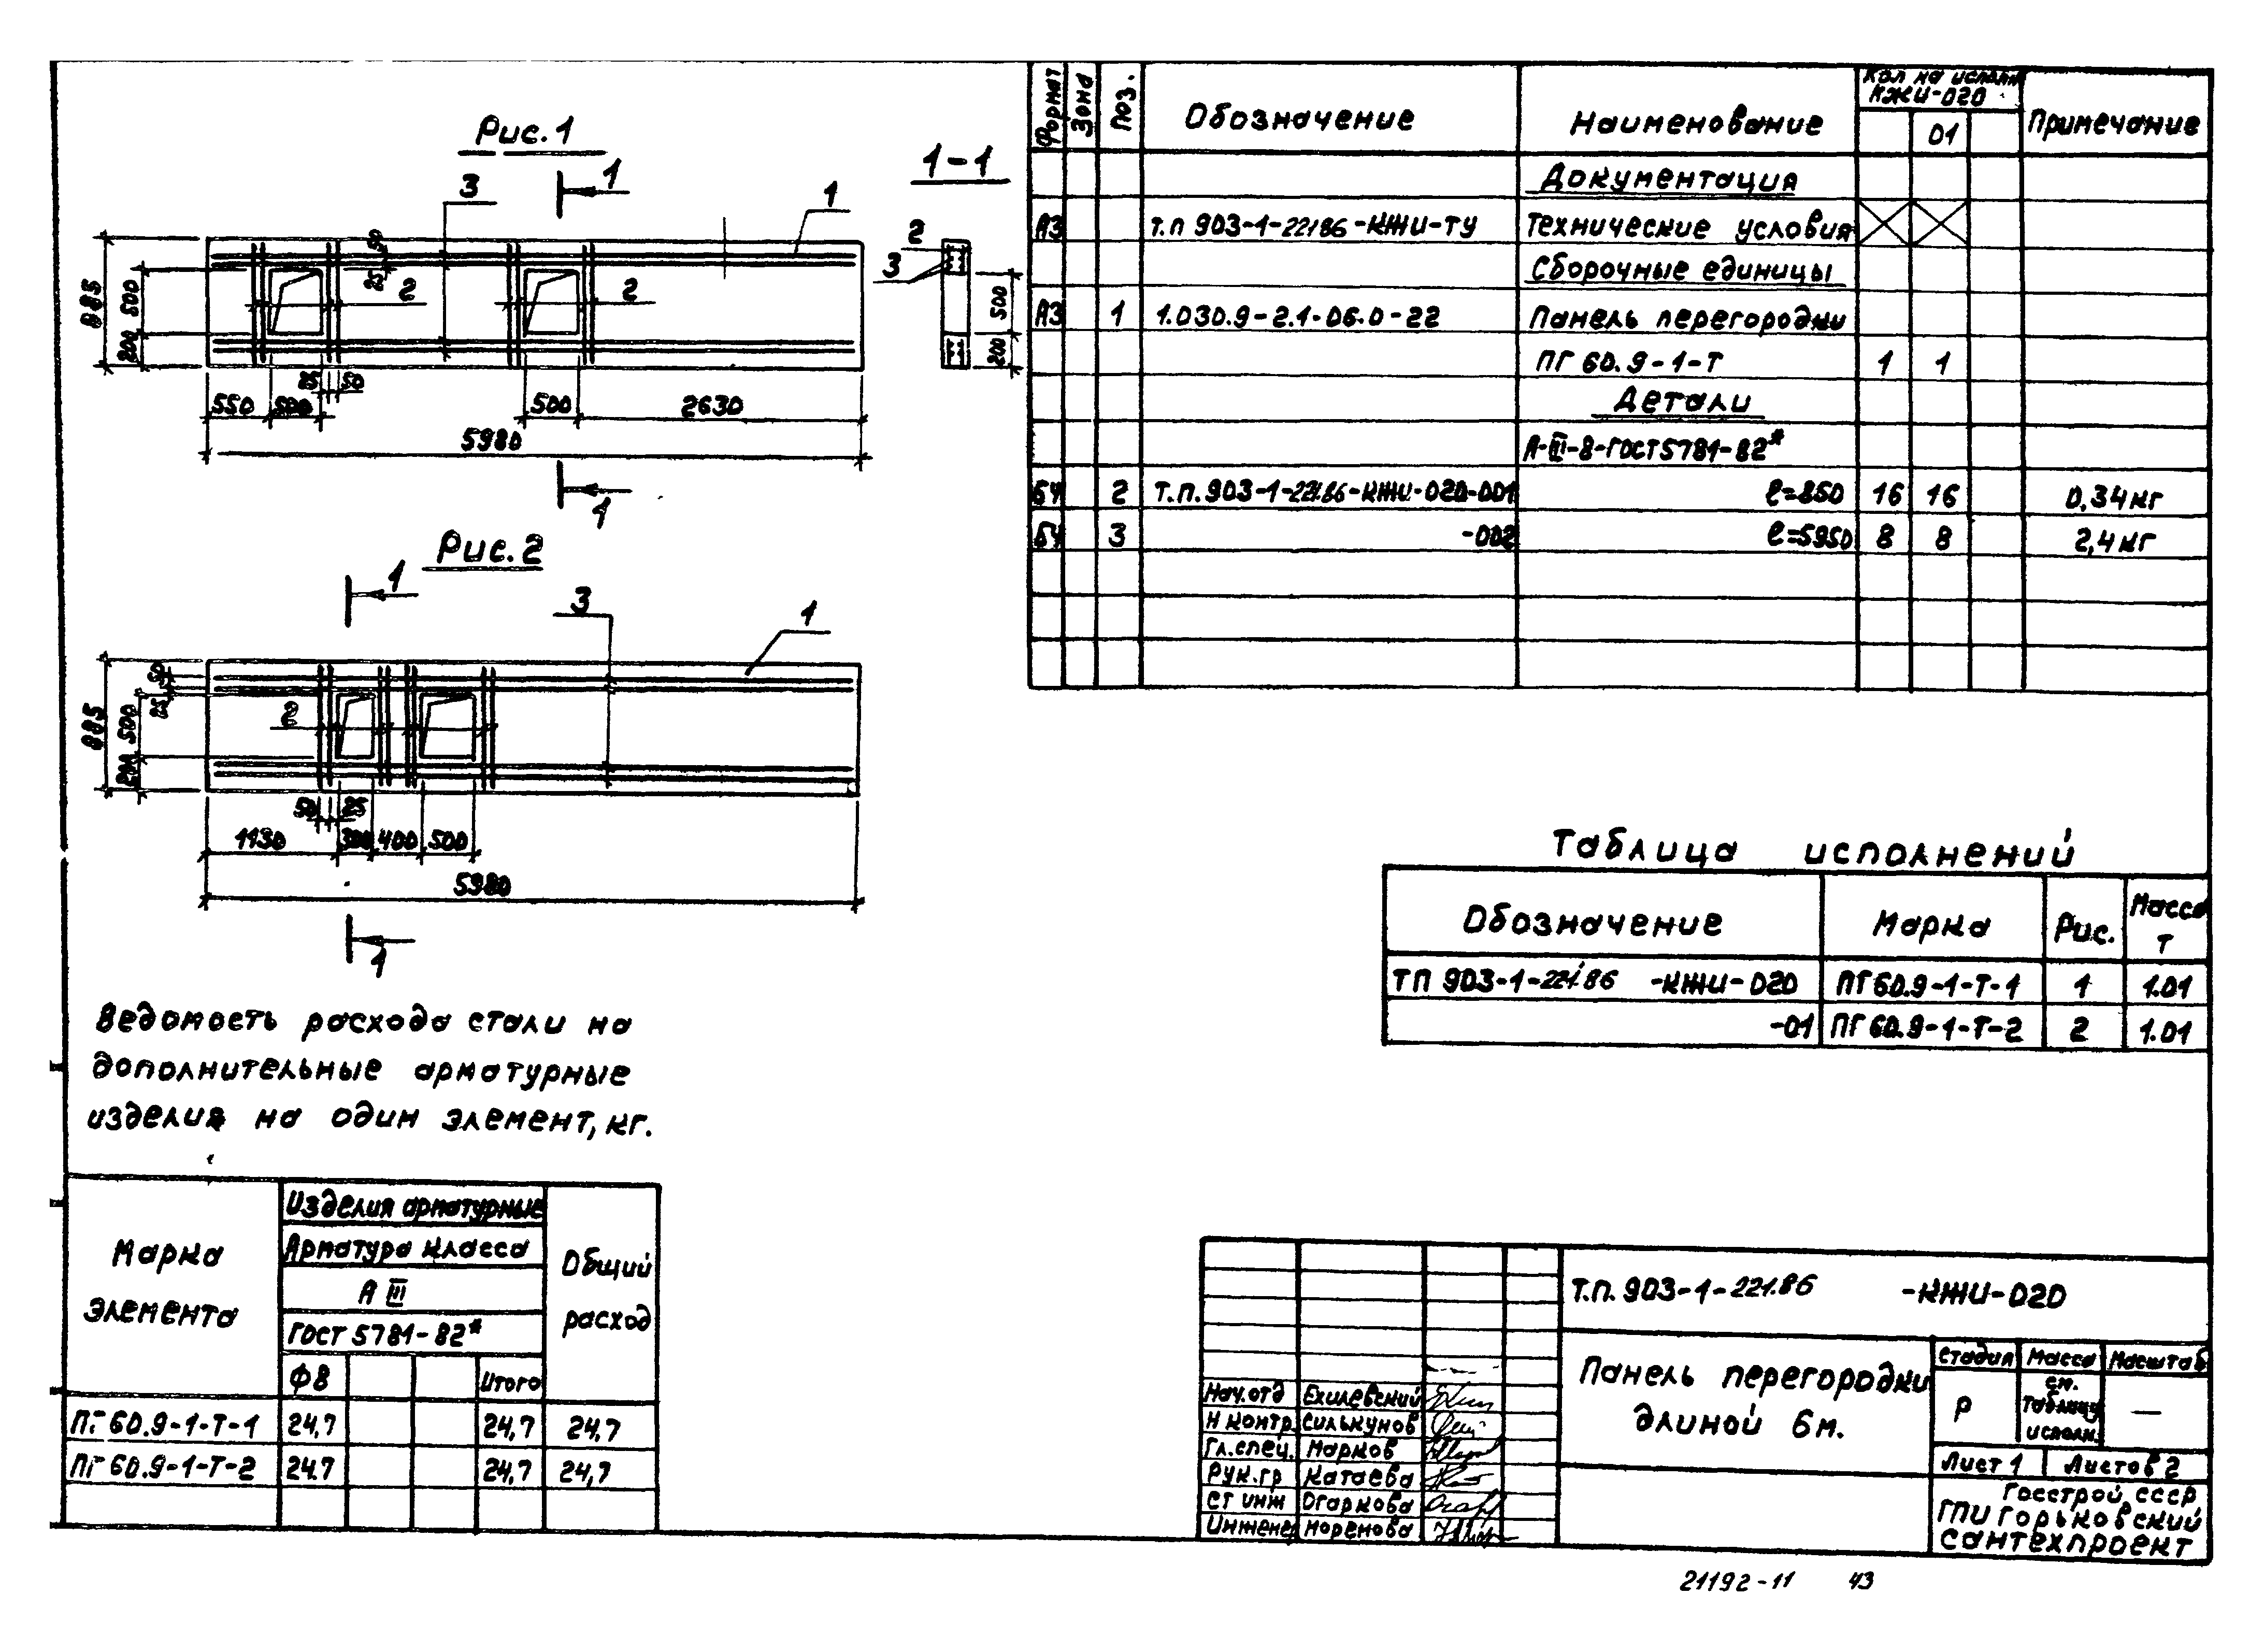 Рис. 1
1
1-1
3
1
2
3
885
200 500
50
25
2
2
500
200
25 50
550 500 500 2630
5980
1
Рис. 2
1
3
1
885
200 500
50
25
2
50 25
1130 300 400 500
5980
1
Формат Зона Поз. Обозначение Наименование Кол на исполн КЖИ-020 Примечание
01
Документация
А3 т.п 903-1-221.86-КЖИ-ТУ Технические условия
Сборочные единицы
А3 1 1.030.9-2.1-06.0-22 Панель перегородки
ПГ 60.9-1-Т 1 1
Детали
А-III-8-ГОСТ5781-82*
БЧ 2 Т.п.903-1-221.86-КЖИ-020-001 ℓ=850 16 16 0,34кг
БЧ 3 -002 ℓ=5950 8 8 2,4кг
Таблица исполнений
Обозначение Марка Рис. Масса т
ТП 903-1-221.86 -КЖИ-020 ПГ60.9-1-Т-1 1 1.01
-01 ПГ 60.9-1-Т-2 2 1.01
Ведомость расхода стали на
дополнительные арматурные
изделия на один элемент, кг.
Марка элемента
Изделия арматурные
Арматура класса
А III
ГОСТ 5781-82*
Ф8 Итого
Общий расход
ПГ 60.9-1-Т-1 24,7 24,7 24,7
ПГ 60.9-1-Т-2 24.7 24,7 24,7
Т.п. 903-1-221.86 -КЖИ-020
Панель перегородки
длиной 6м.
Стадия Масса Масштаб
Р см. таблицу исполн. —
Лист 1 Листов 2
Госстрой СССР
ГПИ Горьковский
Сантехпроект
Нач.отд Ехилевский
Н контр. Силькунов
Гл.спец. Марков
Рук.гр Катаева
Ст инж Огаркова
Инженер Моренова
21192-11 43